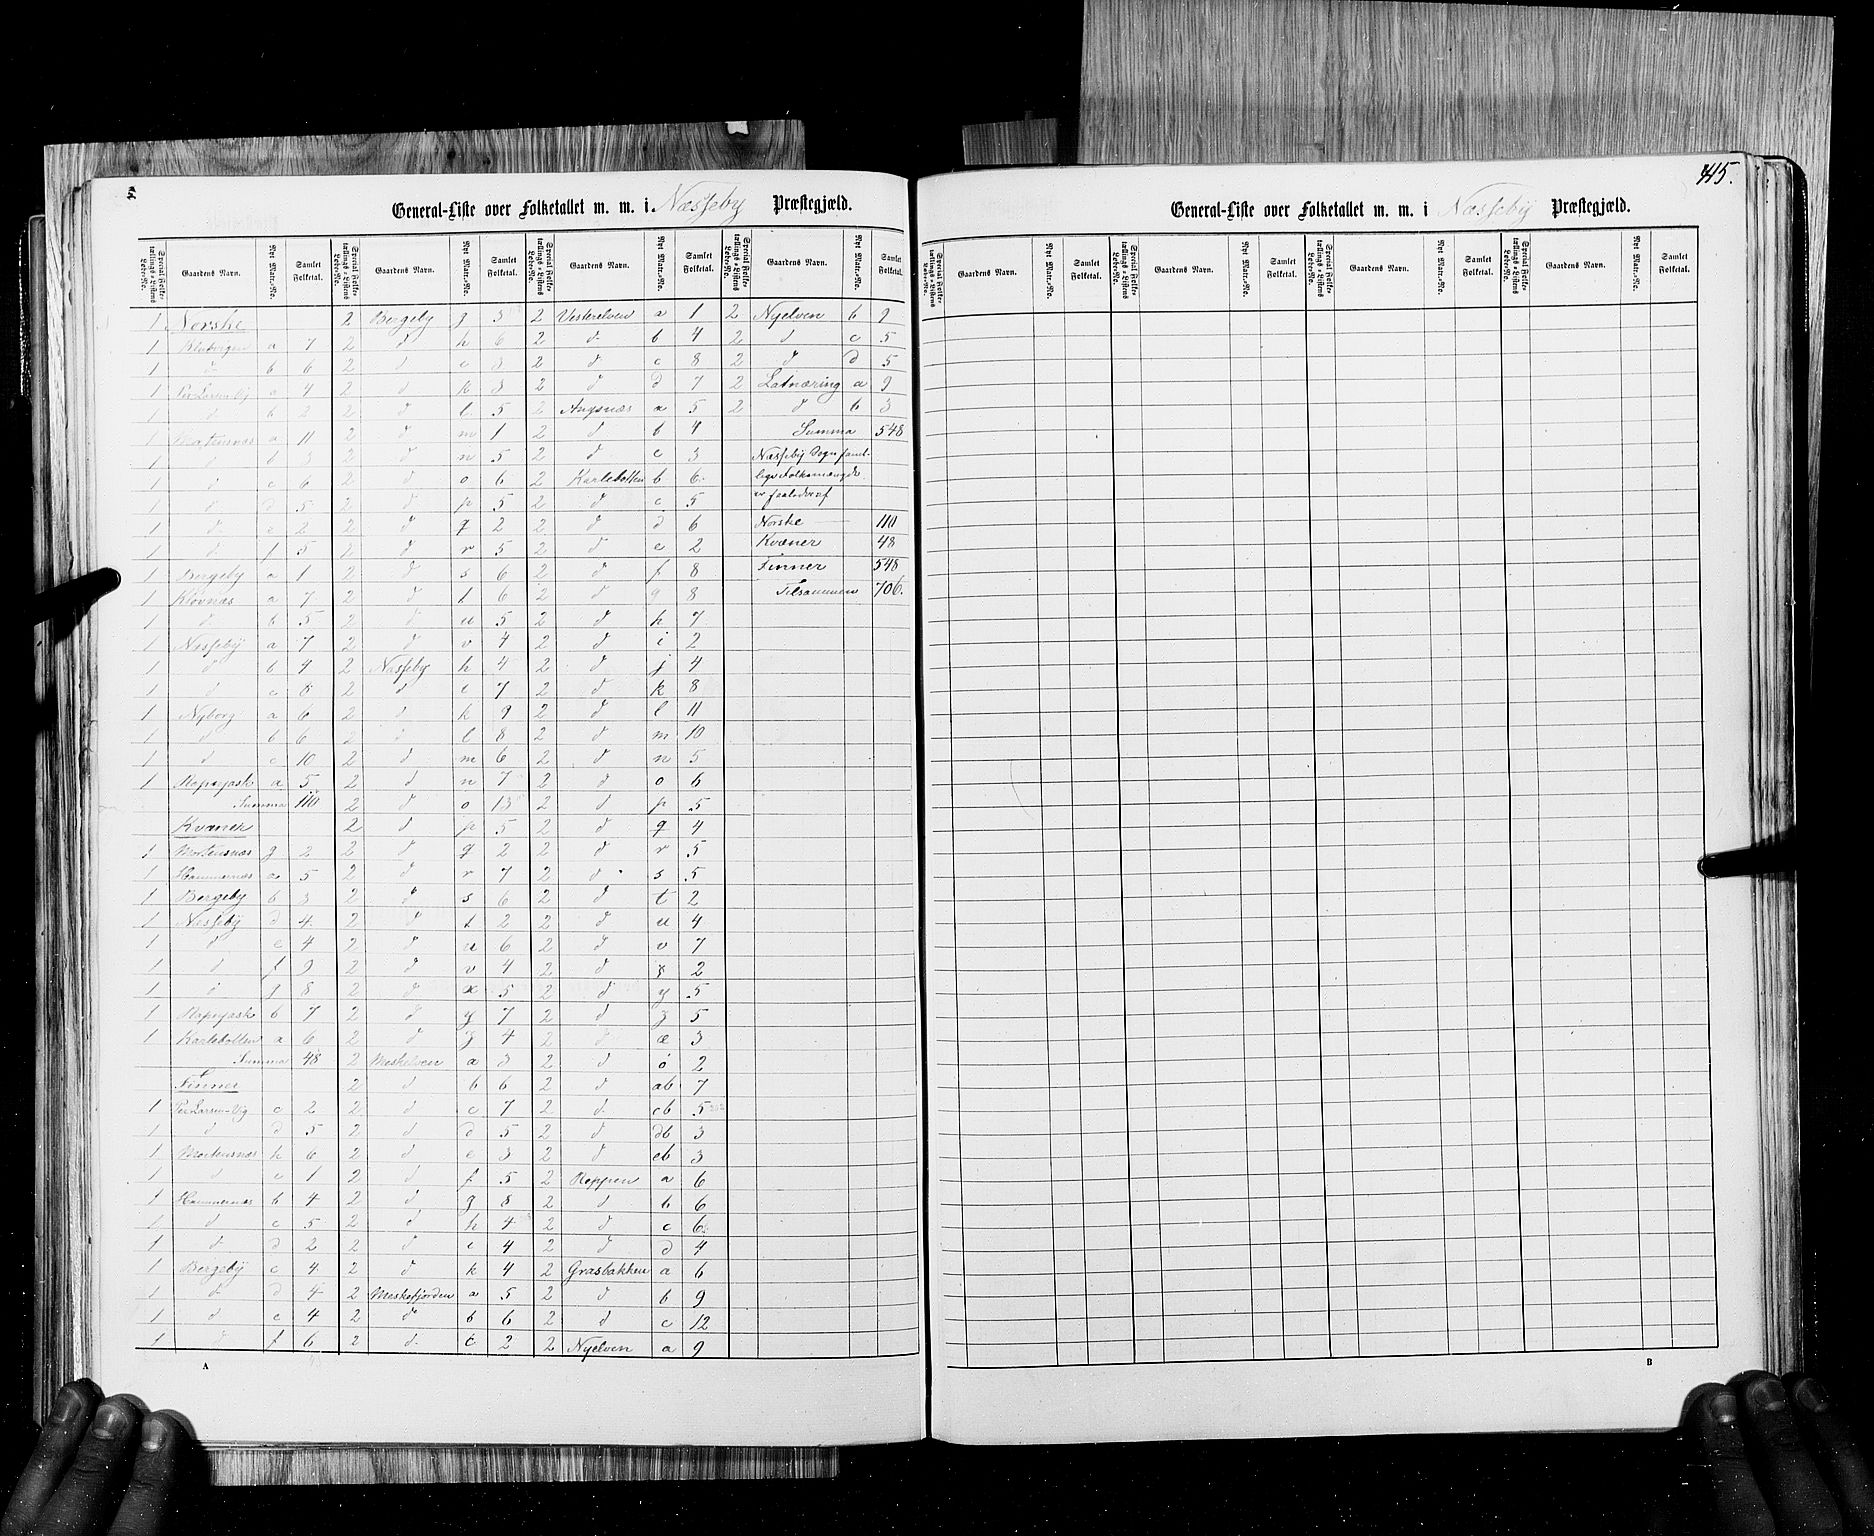 General-Liste over Folketallet m. m. i Næsseby Præstegjæld.
Special Folketællings-Listens Løbe-No. Gaardens Navn. Nyt Matr.-No. Samlet Folketal.
1 Norske
1 a 7
1 d b 6
1 Per Larsen Vig a 4
1 d b 2
1 Mortensnæs a 11
1 d b 3
1 d c 6
1 d d 5
1 d e 2
1 d f 5
1 Bergeby a 1
1 Klovnæs a 7
1 d b 5
1 Næsseby a 7
1 d b 4
1 d c 8
1 Nyborg a 6
1 d b 6
1 d c 10
1 a 5
Summa 110
Kvæner
1 Mortensnæs g 2
1 Hammernæs a 5
1 Bergeby b 3
1 Næsseby d 4
1 d e 4
1 d f 9
1 d g 8
1 b 7
1 Karlebotten a 6
Summa 48
Finner
1 Per Larsen-Vig c 2
1 d d 5
1 Mortensnæs h 6
1 d i 1
1 Hammernæs b 4
1 d c 5
1 d d 2
1 Bergeby c 4
1 d d 4
1 d e 4
1 d f 6
Special Folketællings-Listens Løbe-No. Gaardens Navn. Nyt Matr.-No. Samlet Folketal.
2 Bergeby g 3
2 d h 6
2 d i 3
2 d k 3
2 d l 5
2 d m 1
2 d n 5
2 d o 6
2 d p 5
2 d q 2
2 d r 5
2 d s 6
2 d t 6
2 d u 5
2 d v 4
2 Næsseby h 4
2 d i 7
2 d k 9
2 d l 8
2 d m 6
2 d n 7
2 d o 13
2 d p 5
2 d q 2
2 d r 7
2 d s 6
2 d t 2
2 d u 6
2 d v 4
2 d x 5
2 d y 7
2 d z 4
2 Meskelven a 3
2 d b 6
2 d c 7
2 d d 5
2 d e 3
2 d f 5
2 d g 8
2 d h 4
2 d i 4
2 d k 4
2 Meskefjorden a 5
2 d b 6
2 d c 2
Special Folketællings-Listens Løbe-No. Gaardens Navn. Nyt Matr.-No. Samlet Folketal.
2 Vesterelven a 1
2 d b 4
2 d c 8
2 d d 7
2 Angsnæs a 5
2 d b 4
2 d c 3
2 Karlebotten b 6
2 d c 5
2 d d 6
2 d e 2
2 d f 8
2 d g 8
2 d h 7
2 d i 2
2 d j 4
2 d k 8
2 d l 11
2 d m 10
2 d n 5
2 d o 6
2 d p 5
2 d q 4
2 d r 5
2 d s 5
2 d t 2
2 d u 4
2 d v 7
2 d x 2
2 d y 5
2 d z 5
2 d æ 3
2 d ö 2
2 d ab 7
2 d cb 5
2 d db 3
2 d eb 3
2 Reppen a 6
2 d b 6
2 d c 6
2 d d 4
2 Grasbakken a 6
2 d b 9
2 d c 12
2 Nyelven a 9
Special Folketællings-Listens Løbe-No. Gaardens Navn. Nyt Matr.-No. Samlet Folketal.
2 Nyelven b 9
2 d c 5
2 d d 5
2 Latnæring a 9
2 d b 3
Summa 548
Næsseby Sogn samt-
lige Folkemængde
er saaledes af
Norske 110
Kvæner 48
Finner 548
Tilsammen 706.
A
445.
General-Liste over Folketallet m. m. i Næsseby Præstegjæld.
Special Folketællings-Listens Løbe-No. Gaardens Navn. Nyt Matr.-No. Samlet Folketal.
Special Folketællings-Listens Løbe-No. Gaardens Navn. Nyt Matr.-No. Samlet Folketal.
Special Folketællings-Listens Løbe-No. Gaardens Navn. Nyt Matr.-No. Samlet Folketal.
Special Folketællings-Listens Løbe-No. Gaardens Navn. Nyt Matr.-No. Samlet Folketal.
B